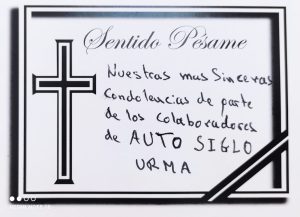 Sentido Pésame
Nuestras mas Sinceras
Condolencias de parte
de los colaboradores
de AUTO SIGLO
URMA